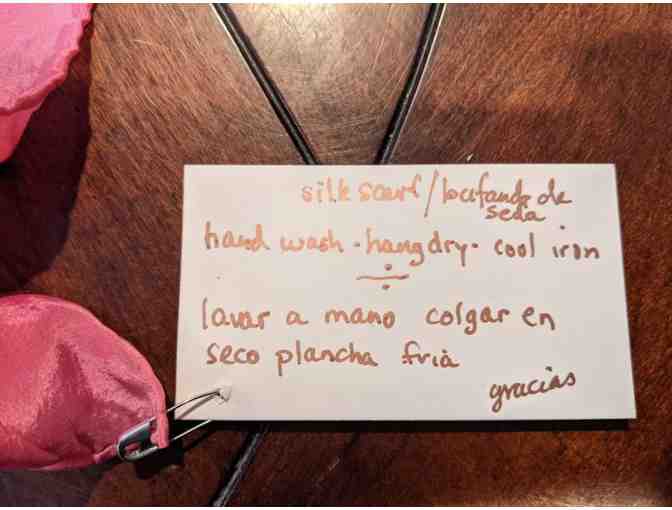 silk scarf/bufanda de
seda
hand wash · hang dry · cool iron
÷
lavar a mano colgar en
seco plancha frià
gracias